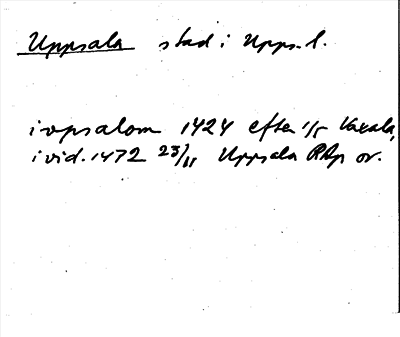 Uppsala stad i Upps. l.
i vpsalom 1424 efter 1/5 Vaxala,
ivid. 1472 23/11 Uppsala RAp or.